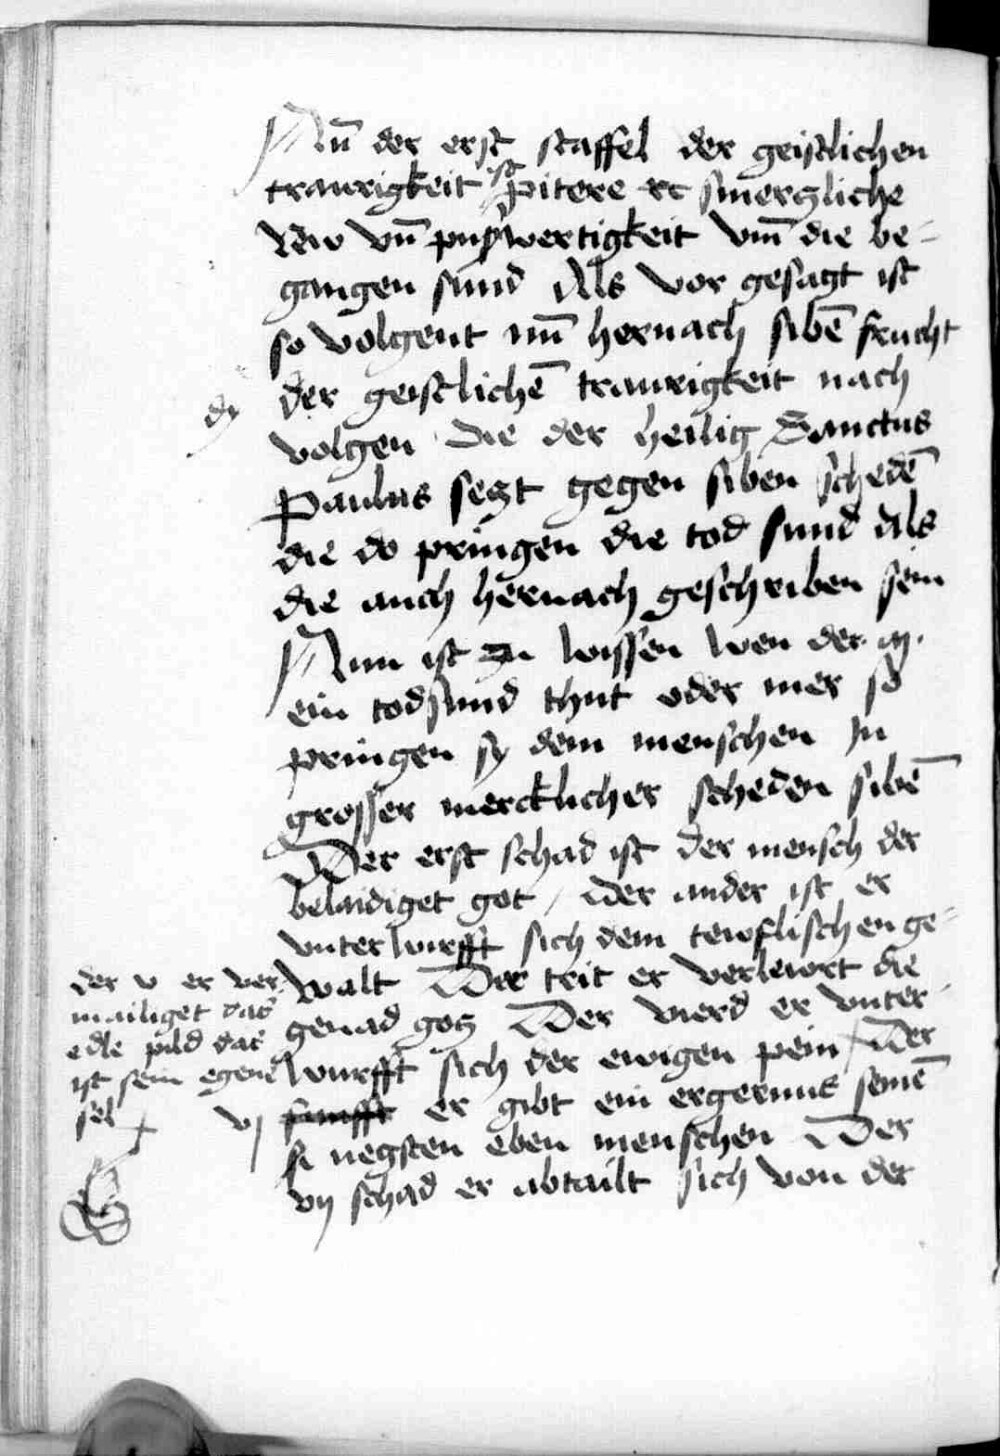 Nu̅ der erst staffel der geistlichen
traurigkeit ist pitere er smerczliche
Rew vn̅ puswertigkeit vm̅ die be-
gangen sund Als vor gesagt ist
so volgent nu̅ hernach sibe̅ frucht
dy
der geistliche̅ traurigkeit nach
volgen die der heilig Sanctus
Paulus seczt gegen siben schede̅
die do pringen die tod sund Als
die auch hernach geschriben sein
Nun ist zu wissen wen der m.
ein todsund thut oder mer so
pringen sy dem menschen Jn
grosser mercklicher scheden sibe̅
Der erst schad ist der mensch der
belaidiget got / der ander ist er
vnterwurfft sich dem tewflischen ge-
walt Der trit er verlewrt die
genad gocz Der vierd er vnter-
wurfft sich der ewigen pein + Der
vj funfft er gibt ein ergernus seine̅
negsten eben menschen Der
vij schad er abtailt sich von der
der v er ver
mailiget das
edle pild das
ist sein egene
sel +